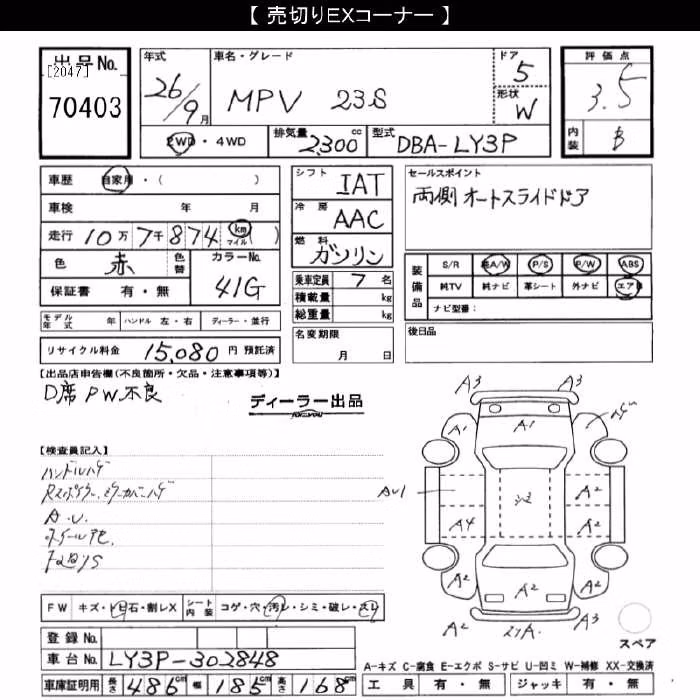 【 売切りEXコーナー 】
出品No.
[2047]
70403
年式
26/9月
車名・グレード
MPV 23S
ドア
5
形状
W
評価点
3.5
内装
B
2WD・4WD
排気量 2,300 cc
型式 DBA-LY3P
車歴 自家用・( )
車検 年 月
走行 10万 7千 874 km マイル ( )
色 赤 色替
カラーNo.
41G
保証書 有・無
モデル年式 年 ハンドル 左・右 ディーラー・並行
リサイクル料金 15,080 円 預託済
シフト
IAT
冷房
AAC
燃料
ガソリン
乗車定員 7 名
積載量 kg
総重量 kg
名変期限
月 日
セールスポイント
両側オートスライドドア
装備品
S/R 純A/W P/S P/W ABS
純TV 純ナビ 革シート 外ナビ エアB
ナビ型番:
後日品
【出品店申告欄(不良箇所・欠品・注意事項等)】
D席PW不良
ディーラー出品
for you
【検査員記入】
ハンドルハゲ
Rスポイラー、ミラーカバーハゲ
A.U.
FW キズ・トビ石・割レX シート内装 コゲ・穴・汚レ・シミ・破レ・スレ
登録No.
車台No. LY3P-302848
車庫証明用 長さ 486cm 幅 185cm 高さ 168cm
A3 A3
A1 A1
AU1 A2
A4 A2
A2 A2 A2
A2 A3
スペア
A-キズ C-腐食 E-エクボ S-サビ U-凹ミ W-補修 XX-交換済
工具 有・無 ジャッキ 有・無